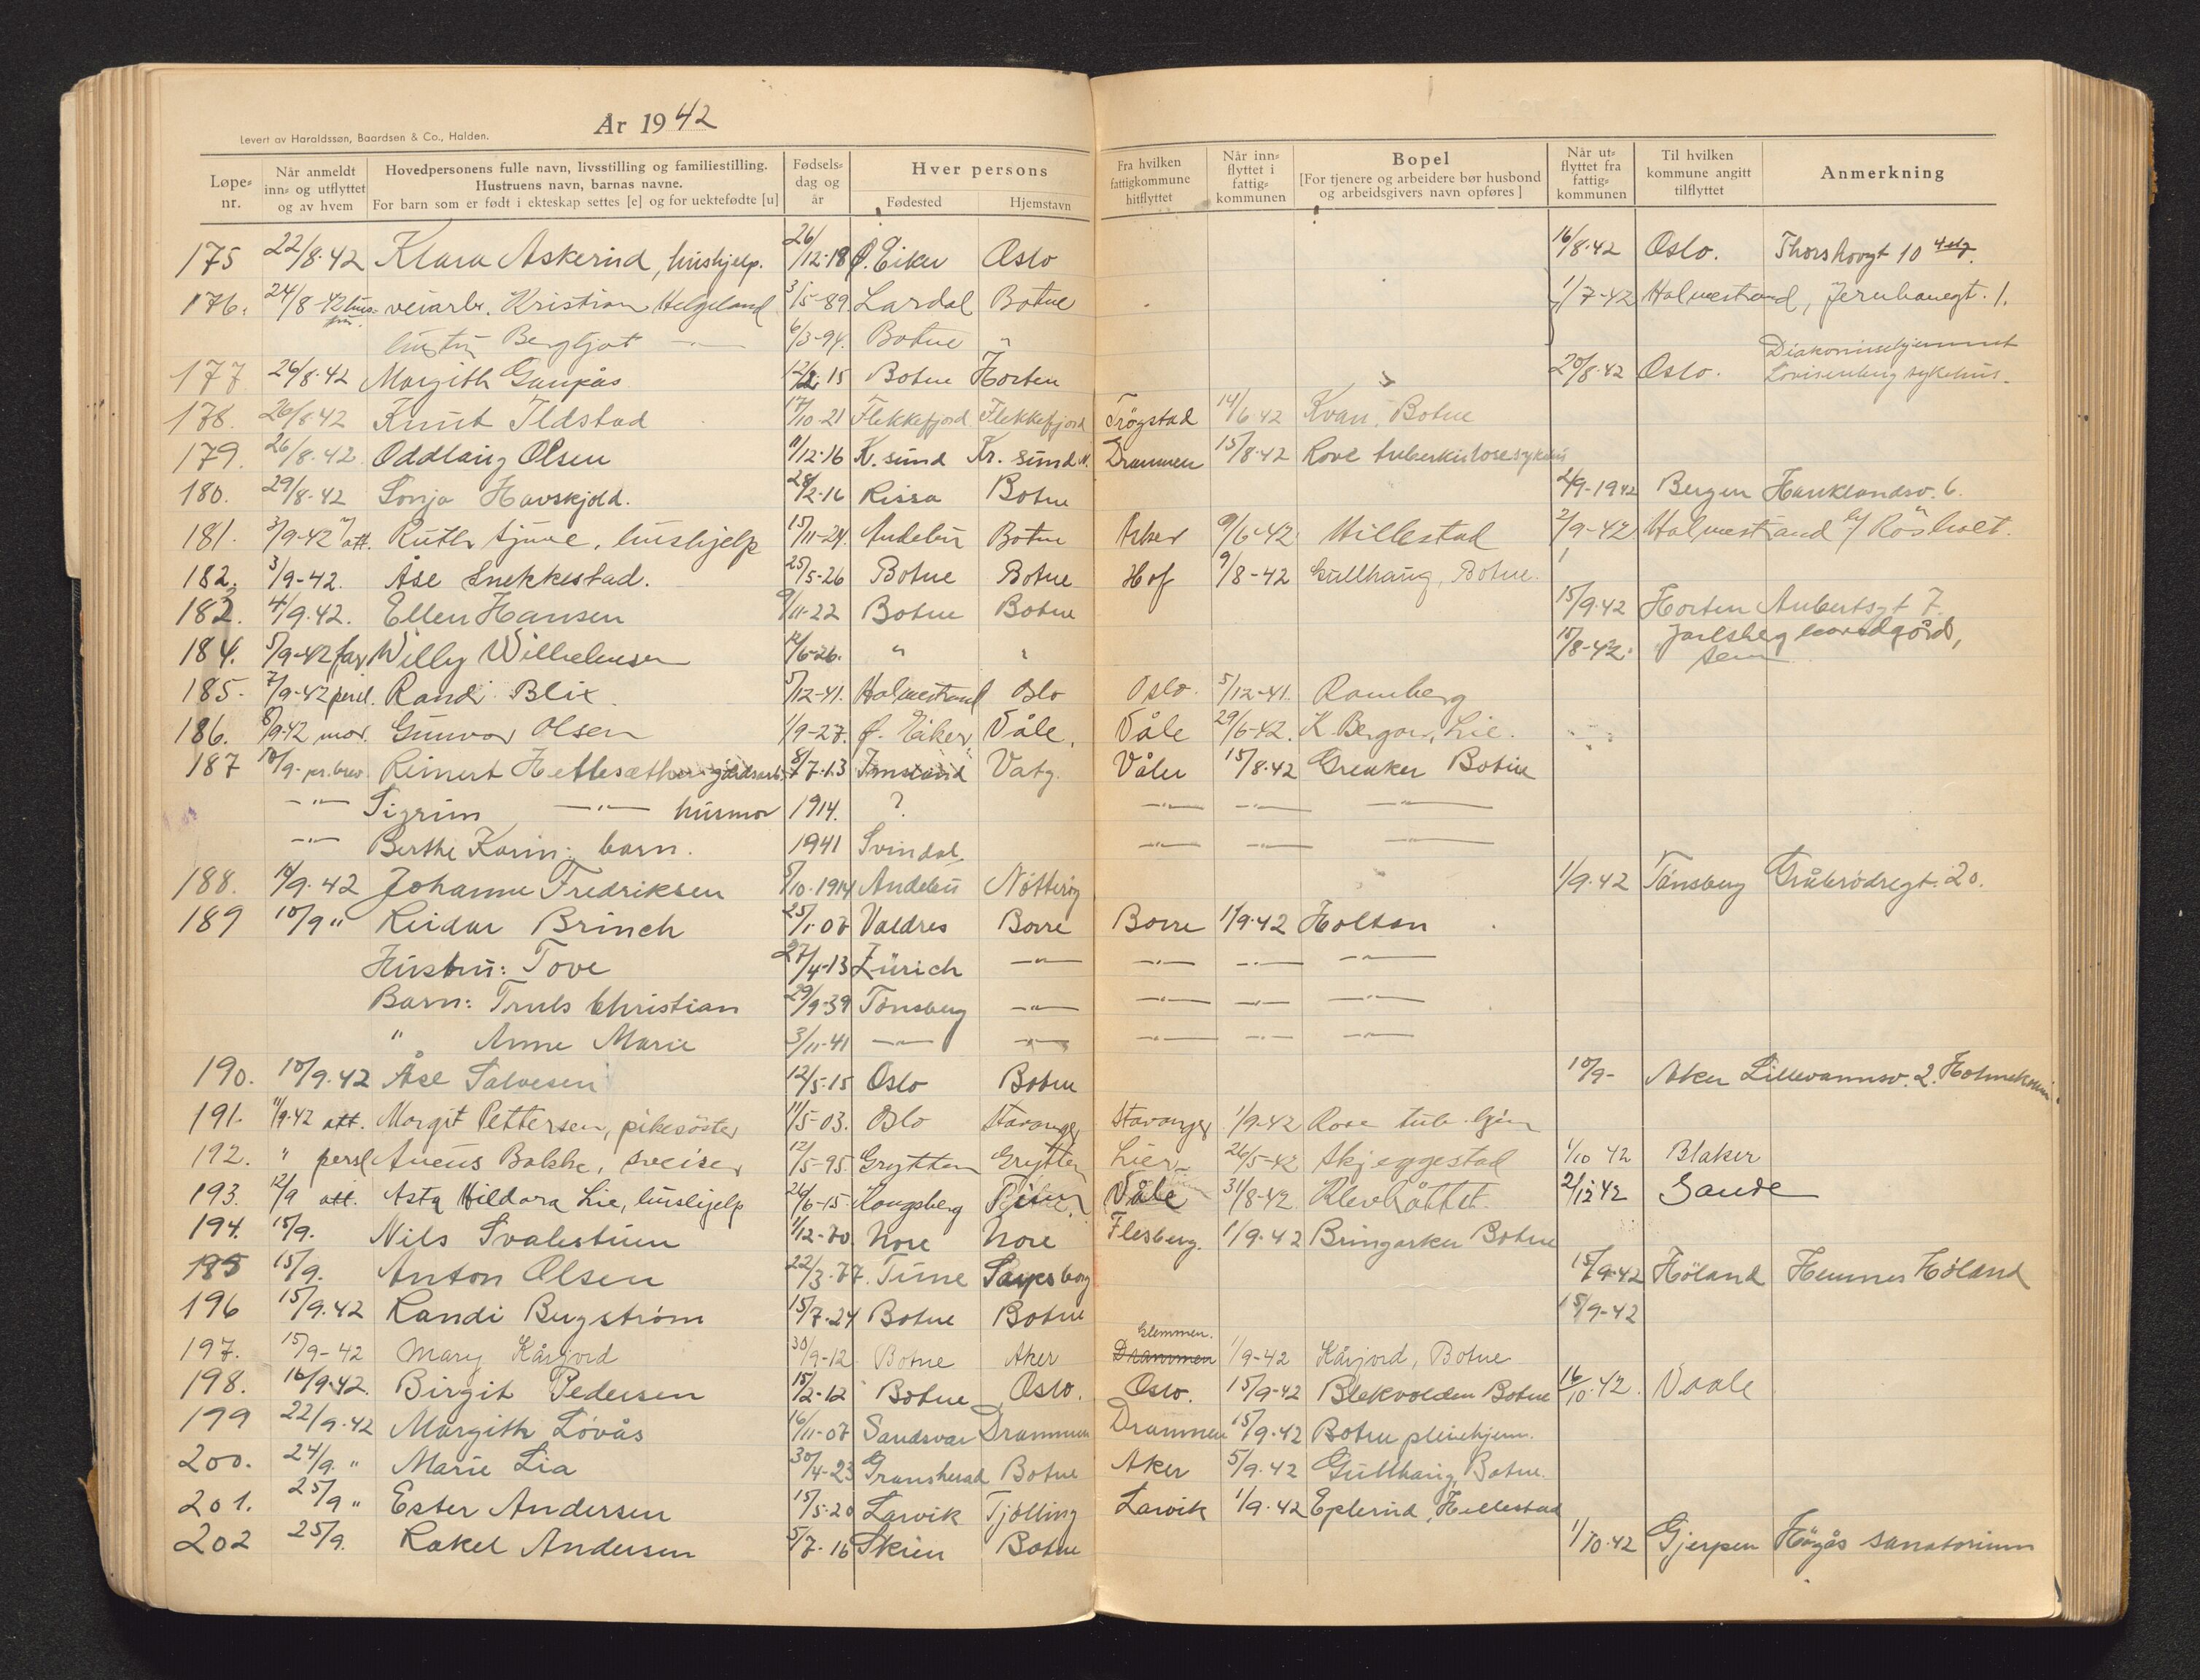 År 1942
Levert av Haraldssøn, Baardsen & Co., Halden.
Løpe-nr. | Når anmeldt inn- og utflyttet og av hvem | Hovedpersonens fulle navn, livsstilling og familiestilling. Hustruens navn, barnas navne. For barn som er født i ekteskap settes [e] og for uektefødte [u] | Fødsels-dag og år | Hver persons Fødested | Hjemstavn | Fra hvilken fattigkommune hitflyttet | Når inn-flyttet i fattig-kommunen | Bopel [For tjenere og arbeidere bør husbond og arbeidsgivers navn opføres] | Når ut-flyttet fra fattig-kommunen | Til hvilken kommune angitt tilflyttet | Anmerkning
175 22/8-42 Klara Askerud, hushjelp. 26/12-18 Ø. Eiker Oslo 16/8-42 Oslo. Thorshovgt 10 4 etg.
176. 24/8-42 veiarb. Kristian Helgeland 3/5-89 Lardal Botne 1/7-42 Holmestrand, Jernbanegt. 1.
hustru Bergljot —"— 6/3-94. Botne "
177 26/8-42 Margith Gaupås 12/2-15 Botne Horten 20/8-42 Oslo. Diakonissehjemmet Lovisenberg sykehus.
178. 26/8-42 Knut Ildstad 17/10-21 Flekkefjord Flekkefjord Trøgstad 14/6-42 Kvan, Botne
179. 26/8-42 Oddlaug Olsen 11/12-16 K.sund Kr.sund N. Drammen 15/8-42 Rove tuberkulosesykehus
180. 29/8-42 Sonja Havskjold. 28/2-16 Rissa Botne 2/9-1942 Bergen Hauklandsv. 6.
181. 3/9-42 att. Ruth Tjune, hushjelp 15/11-24. Andebu Botne Aker 9/6-42 Hillestad 2/9-42 Holmestrand
182. 3/9-42. Åse Snekkestad. 25/5-26 Botne Botne Hof 9/8-42 Gullhaug, Botne.
182. 4/9.42. Ellen Hansen 9/11-22 Botne Botne 15/9.42 Horten Aubertsgt 7.
184. 5/9-42 far Willy Wilhelmsen 12/6-26. " " 15/8-42. Jarlsberg hovedgård, Sem
185. 7/9-42 persl. Randi Blix 5/12-41. Holmestrand Oslo Oslo. 5/12-41. Ramberg
186. 8/9-42 mor. Gunvor Olsen 1/9-27. Ø. Eiker Våle. Våle 29/6-42. K. Bergan, Lie.
187 10/9- pr. brev. Reinert Hettesæther gårdsarb. 8/7-13 Vatg. Våler 15/8.42 Grenker Botne
—"— Sigrun —"— husmor 1914. ? —"— —"— —"—
—"— Berthe Karin: barn. 1941 Svindal. —"— —"— —"—
188. 10/9.42 Johanne Fredriksen 5/10.1914 Andebu Nøtterøy 1/9.42 Tønsberg Gråbrødregt. 20.
189 10/9 " Reidar Brinch 25/1-07 Valdres Borre Borre 1/9.42 Holtan
Hustru: Tove 27/4-13 Zürich —"— —"— —"— —"—
Barn: Truls Christian 29/9-39 Tønsberg —"— —"— —"— —"—
" Anne Marie 3/11-41 —"— —"— —"— —"— —"—
190. 10/9.42 Åse Salvesen 12/5-15 Oslo Botne 10/9- Aker Lillevannsv. 2. Holmenkollen
191. 11/9-42 att. Margit Pettersen, pikesöster 11/5-03. Oslo Stavanger Stavanger 1/9-42 Rove tub. hjem
192. " persl Aneus Bakke, sveiser 12/5-95. Grytten Grytten Lier 26/5-42 Skjeggestad 1/10 42 Blaker
193. 12/9 att. Asta Hildora Lie, hushjelp 26/6-15. Kongsberg Våle 31/8-42. Klevhåttet. 2/12 42 Sande
194. 15/9. Nils Svalestuen 1/12-70 Nore Nore Flesberg. 1/9.42 Bringaker Botne
195 15/9. Anton Olsen 22/3-77. Tune Sarpsborg 15/9-42 Høland Hemnes Høland
196 15/9.42 Randi Bergstrøm 15/7-24 Botne Botne 15/9-42
197. 15/9-42 Mary Kårjord 30/9-12 Botne Aker Drammen Glemmen. 1/9-42 Kårjord, Botne
198. 16/9.42. Birgit Pedersen 15/2-12 Botne Oslo. Oslo. 15/9-42 Blekvolden Botne 16/10.42. Vaale
199 22/9.42 Margith Lövås 16/11-07 Sandsvær Drammen Drammen 15/9.42 Botne pleiehjem.
200. 24/9. " Marie Lia 30/4-23 Gransherad Botne Aker 5/9.42 Gullhaug, Botne.
201. 25/9 " Ester Andersen 15/5-20 Larvik Tjølling Larvik 1/9.42 Eplerud, Hillestad
202 25/9. Rakel Andersen 5/7-16 Skien Botne 1/10.42 Gjerpen Høgås sanatorium